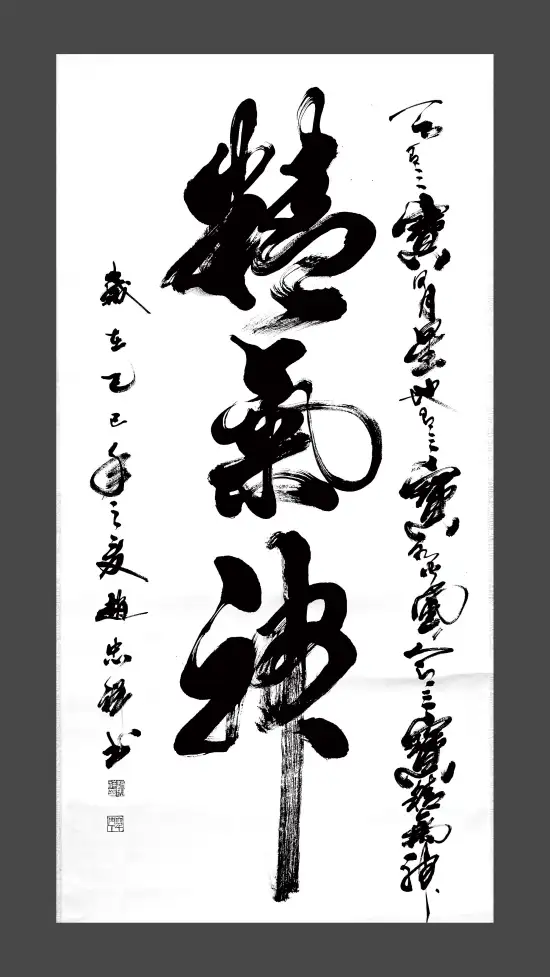 天有三寶日月星地有三寶水火風人有三寶精氣神
精氣神
歲在乙巳年之夏趙忠祥書